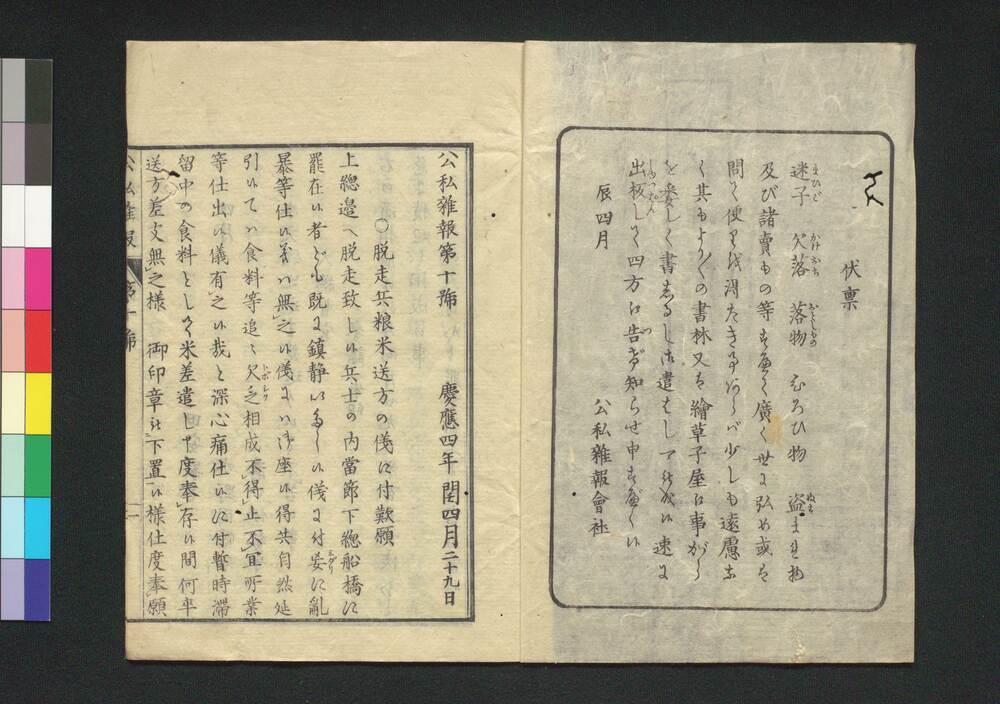 伏禀
迷子 欠落 落物 ひろひ物 盗まれ物
及び諸賣もの等すべて廣く世に弘め或は
問て便りを得たき事あらバ少しも遠慮な
く其もより〱の書林又は繪草子屋に事がら
を委しく書しるし御遣はし可被成候速に
出板して四方に告げ知らせ申すべく候
辰四月 公私雜報會社
公私雜報第十號 慶應四年閏四月二十九日
○脱走兵粮米送方の儀に付歎願
上總邉へ脱走致し候兵士の内當節下總船橋に
罷在候者ども既に鎮静いたし候儀に付妄に亂
暴等仕候義ハ無之候儀にハ御座候得共自然延
引候てハ食料等追〻欠乏相成不得止不冝所業
等仕出候儀有之候哉と深心痛仕候に付暫時滞
留中の食料として米差遣し申度奉存候間何卒
送方差支無之様 御印章被下置候様仕度奉願
公私雜報 第十號 一